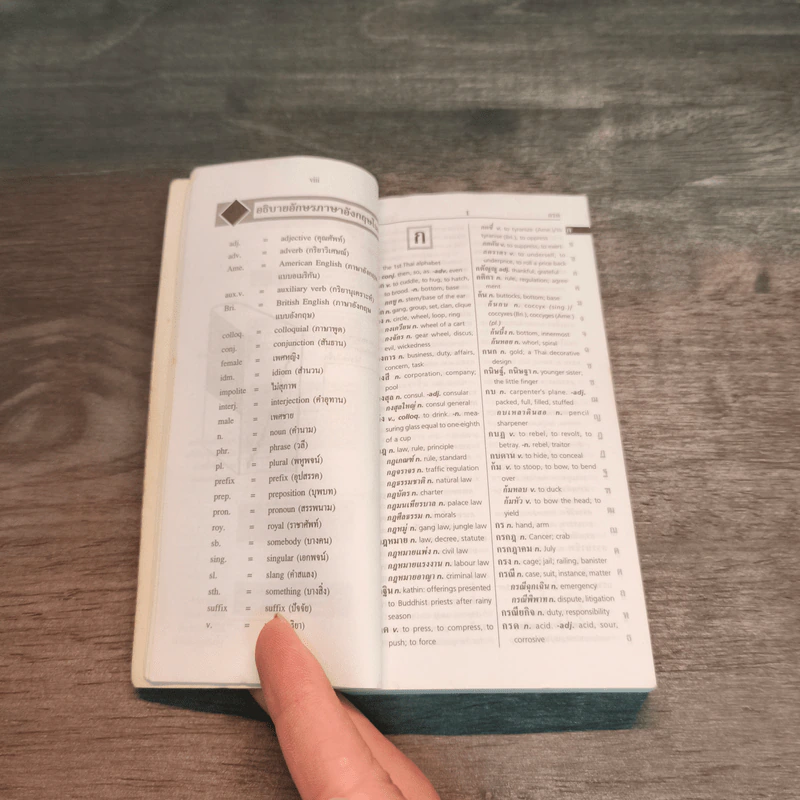 viii
อธิบายอักษรภาษาอังกฤษ
adj. = adjective (คุณศัพท์)
adv. = adverb (กริยาวิเศษณ์)
Ame. = American English (ภาษาอังกฤษ
แบบอเมริกัน)
aux.v. = auxiliary verb (กริยานุเคราะห์)
Bri. = British English (ภาษาอังกฤษ
แบบอังกฤษ)
colloq. = colloquial (ภาษาพูด)
conj. = conjunction (สันธาน)
female = เพศหญิง
idm. = idiom (สำนวน)
impolite = ไม่สุภาพ
interj. = interjection (คำอุทาน)
male = เพศชาย
n. = noun (คำนาม)
phr. = phrase (วลี)
pl. = plural (พหูพจน์)
prefix = prefix (อุปสรรค)
prep. = preposition (บุพบท)
pron. = pronoun (สรรพนาม)
roy. = royal (ราชาศัพท์)
sb. = somebody (บางคน)
sing. = singular (เอกพจน์)
sl. = slang (คำสแลง)
sth. = something (บางสิ่ง)
suffix = suffix (ปัจจัย)
v. =
1
ก
the 1st Thai alphabet
conj. then, so, as -adv. even
v. to cuddle, to hug, to hatch,
to brood -n. bottom; base
n. stem/base of the ear
n. gang, group, set, clan, clique
n. circle, wheel, loop, ring
กงเกวียน n. wheel of a cart
กงจักร n. gear wheel, discus;
evil, wickedness
n. business, duty, affairs,
concern, task
n. corporation, company;
pool
n. consul -adj. consular
กงสุลใหญ่ n. consul general
v., colloq. to drink -n. mea-
suring glass equal to one-eighth
of a cup
n. law, rule, principle
กฎเกณฑ์ n. rule, standard
กฎจราจร n. traffic regulation
กฎธรรมชาติ n. natural law
กฎบัตร n. charter
กฎมณเฑียรบาล n. palace law
กฎศีลธรรม n. morals
กฎหมู่ n. gang law; jungle law
กฎหมาย n. law, decree, statute
กฎหมายแพ่ง n. civil law
กฎหมายแรงงาน n. labour law
กฎหมายอาญา n. criminal law
n. kathin: offerings presented
to Buddhist priests after rainy
season
v. to press, to compress, to
push; to force
กดขี่ v. to tyrannize (Ame.)/to
tyrannise (Bri.), to oppress
v. to suppress, to exert
v. to undersell, to
underprize, to roll a price back
กตัญญู adj. thankful, grateful
กติกา n. rule; regulation; agree-
ment
ก้น n. buttocks, bottom; base
ก้นกบ n. coccyx (sing.)/
coccyxes (Bri.), coccyges (Ame.)
(pl.)
ก้นบึ้ง n. bottom, innermost
ก้นหอย n. whorl, spiral
กนก n. gold, a Thai decorative
design
กนิษฐ์, กนิษฐา n. younger sister;
the little finger
กบ n. carpenter's plane -adj.
packed, full, filled, stuffed
กบเหลาดินสอ n. pencil
sharpener
กบฏ v. to rebel, to revolt, to
betray -n. rebel, traitor
กบดาน v. to hide, to conceal
ก้ม v. to stoop, to bow, to bend
over
ก้มหลบ v. to duck
ก้มหัว v. to bow the head; to
yield
กร n. hand, arm
กรกฎ n. Cancer; crab
กรกฎาคม n. July
กรง n. cage; jail; railing, banister
กรณี n. case, suit, instance, matter
กรณีฉุกเฉิน n. emergency
กรณีพิพาท n. dispute, litigation
กรณียกิจ n. duty, responsibility
กรด n. acid -adj. acid, sour,
corrosive